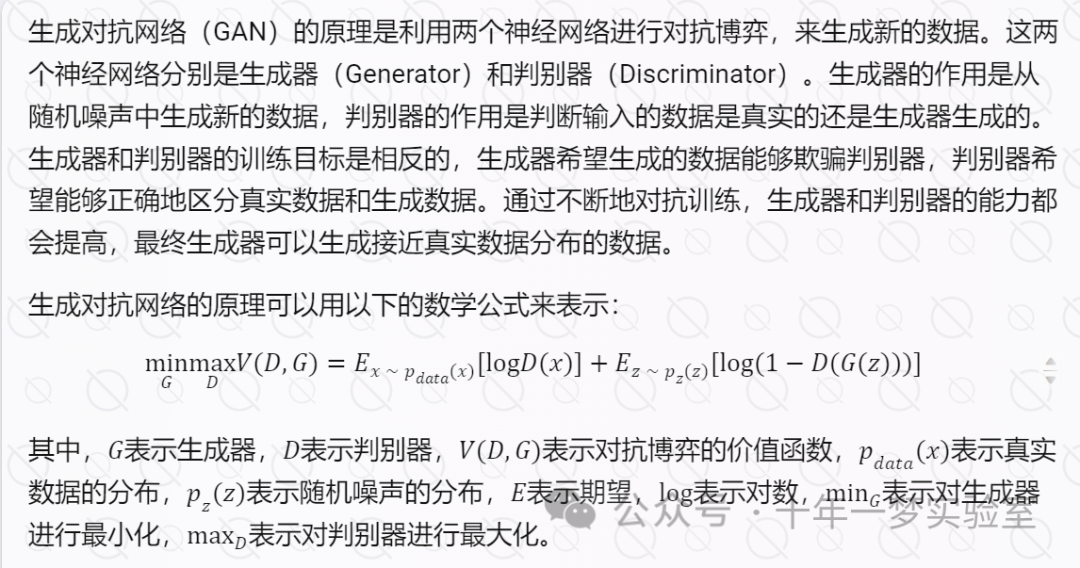 生成对抗网络（GAN）的原理是利用两个神经网络进行对抗博弈，来生成新的数据。这两
个神经网络分别是生成器（Generator）和判别器（Discriminator）。生成器的作用是从
随机噪声中生成新的数据，判别器的作用是判断输入的数据是真实的还是生成器生成的。
生成器和判别器的训练目标是相反的，生成器希望生成的数据能够欺骗判别器，判别器希
望能够正确地区分真实数据和生成数据。通过不断地对抗训练，生成器和判别器的能力都
会提高，最终生成器可以生成接近真实数据分布的数据。
生成对抗网络的原理可以用以下的数学公式来表示：
min_G max_D V(D, G) = E_{x ~ p_{data}(x)}[logD(x)] + E_{z ~ p_z(z)}[log(1 − D(G(z)))]
其中，G表示生成器，D表示判别器，V(D, G)表示对抗博弈的价值函数，p_{data}(x)表示真实
数据的分布，p_z(z)表示随机噪声的分布，E表示期望，log表示对数，min_G表示对生成器
进行最小化，max_D表示对判别器进行最大化。
公众号・十年一梦实验室